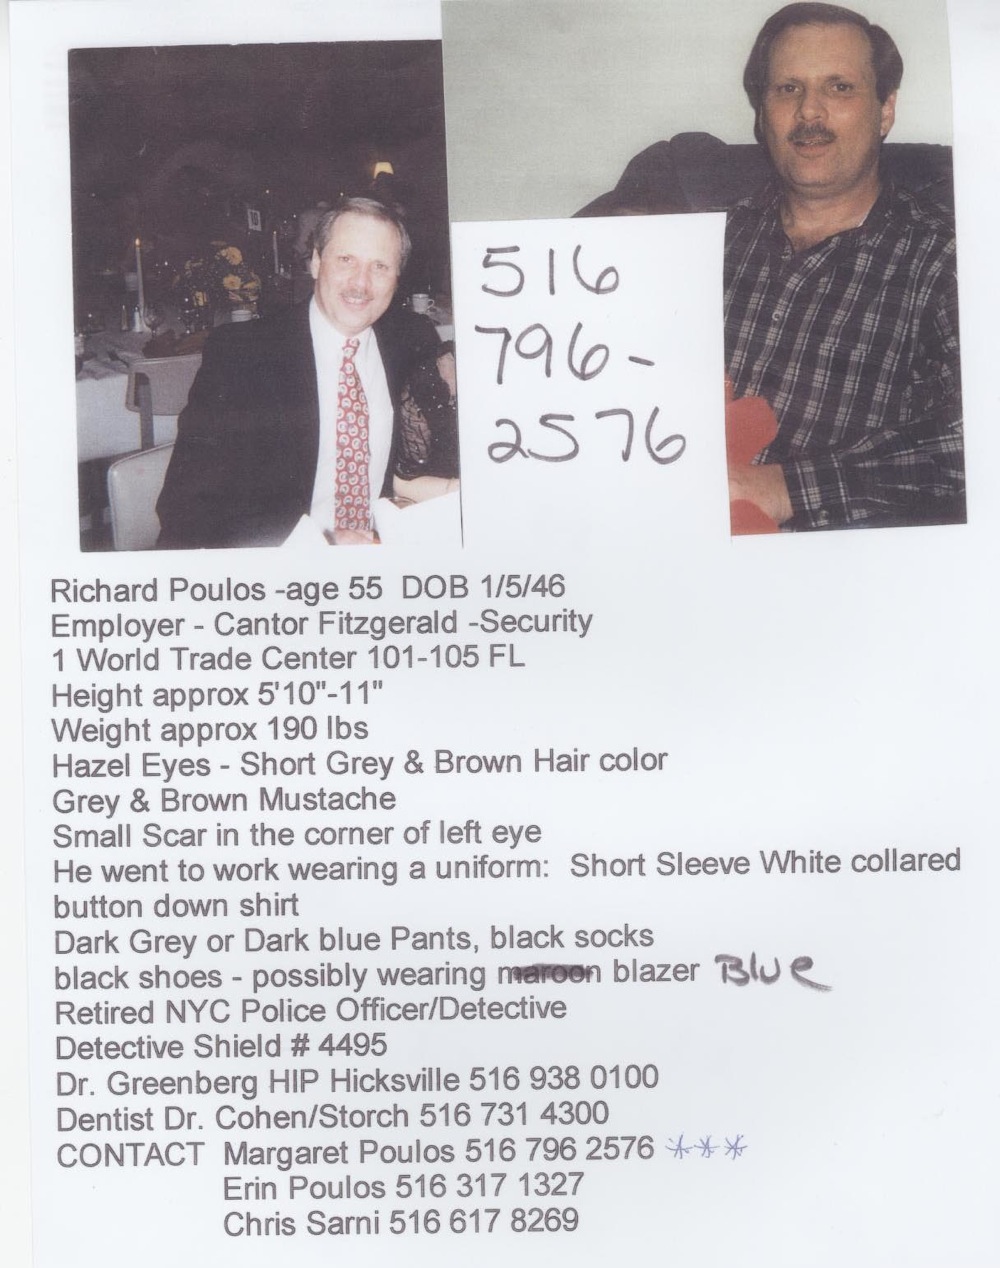 10
516
796-
2576
Richard Poulos -age 55 DOB 1/5/46
Employer - Cantor Fitzgerald -Security
1 World Trade Center 101-105 FL
Height approx 5'10"-11"
Weight approx 190 lbs
Hazel Eyes - Short Grey & Brown Hair color
Grey & Brown Mustache
Small Scar in the corner of left eye
He went to work wearing a uniform: Short Sleeve White collared
button down shirt
Dark Grey or Dark blue Pants, black socks
black shoes - possibly wearing maroon blazer Blue
Retired NYC Police Officer/Detective
Detective Shield # 4495
Dr. Greenberg HIP Hicksville 516 938 0100
Dentist Dr. Cohen/Storch 516 731 4300
CONTACT Margaret Poulos 516 796 2576 ***
Erin Poulos 516 317 1327
Chris Sarni 516 617 8269